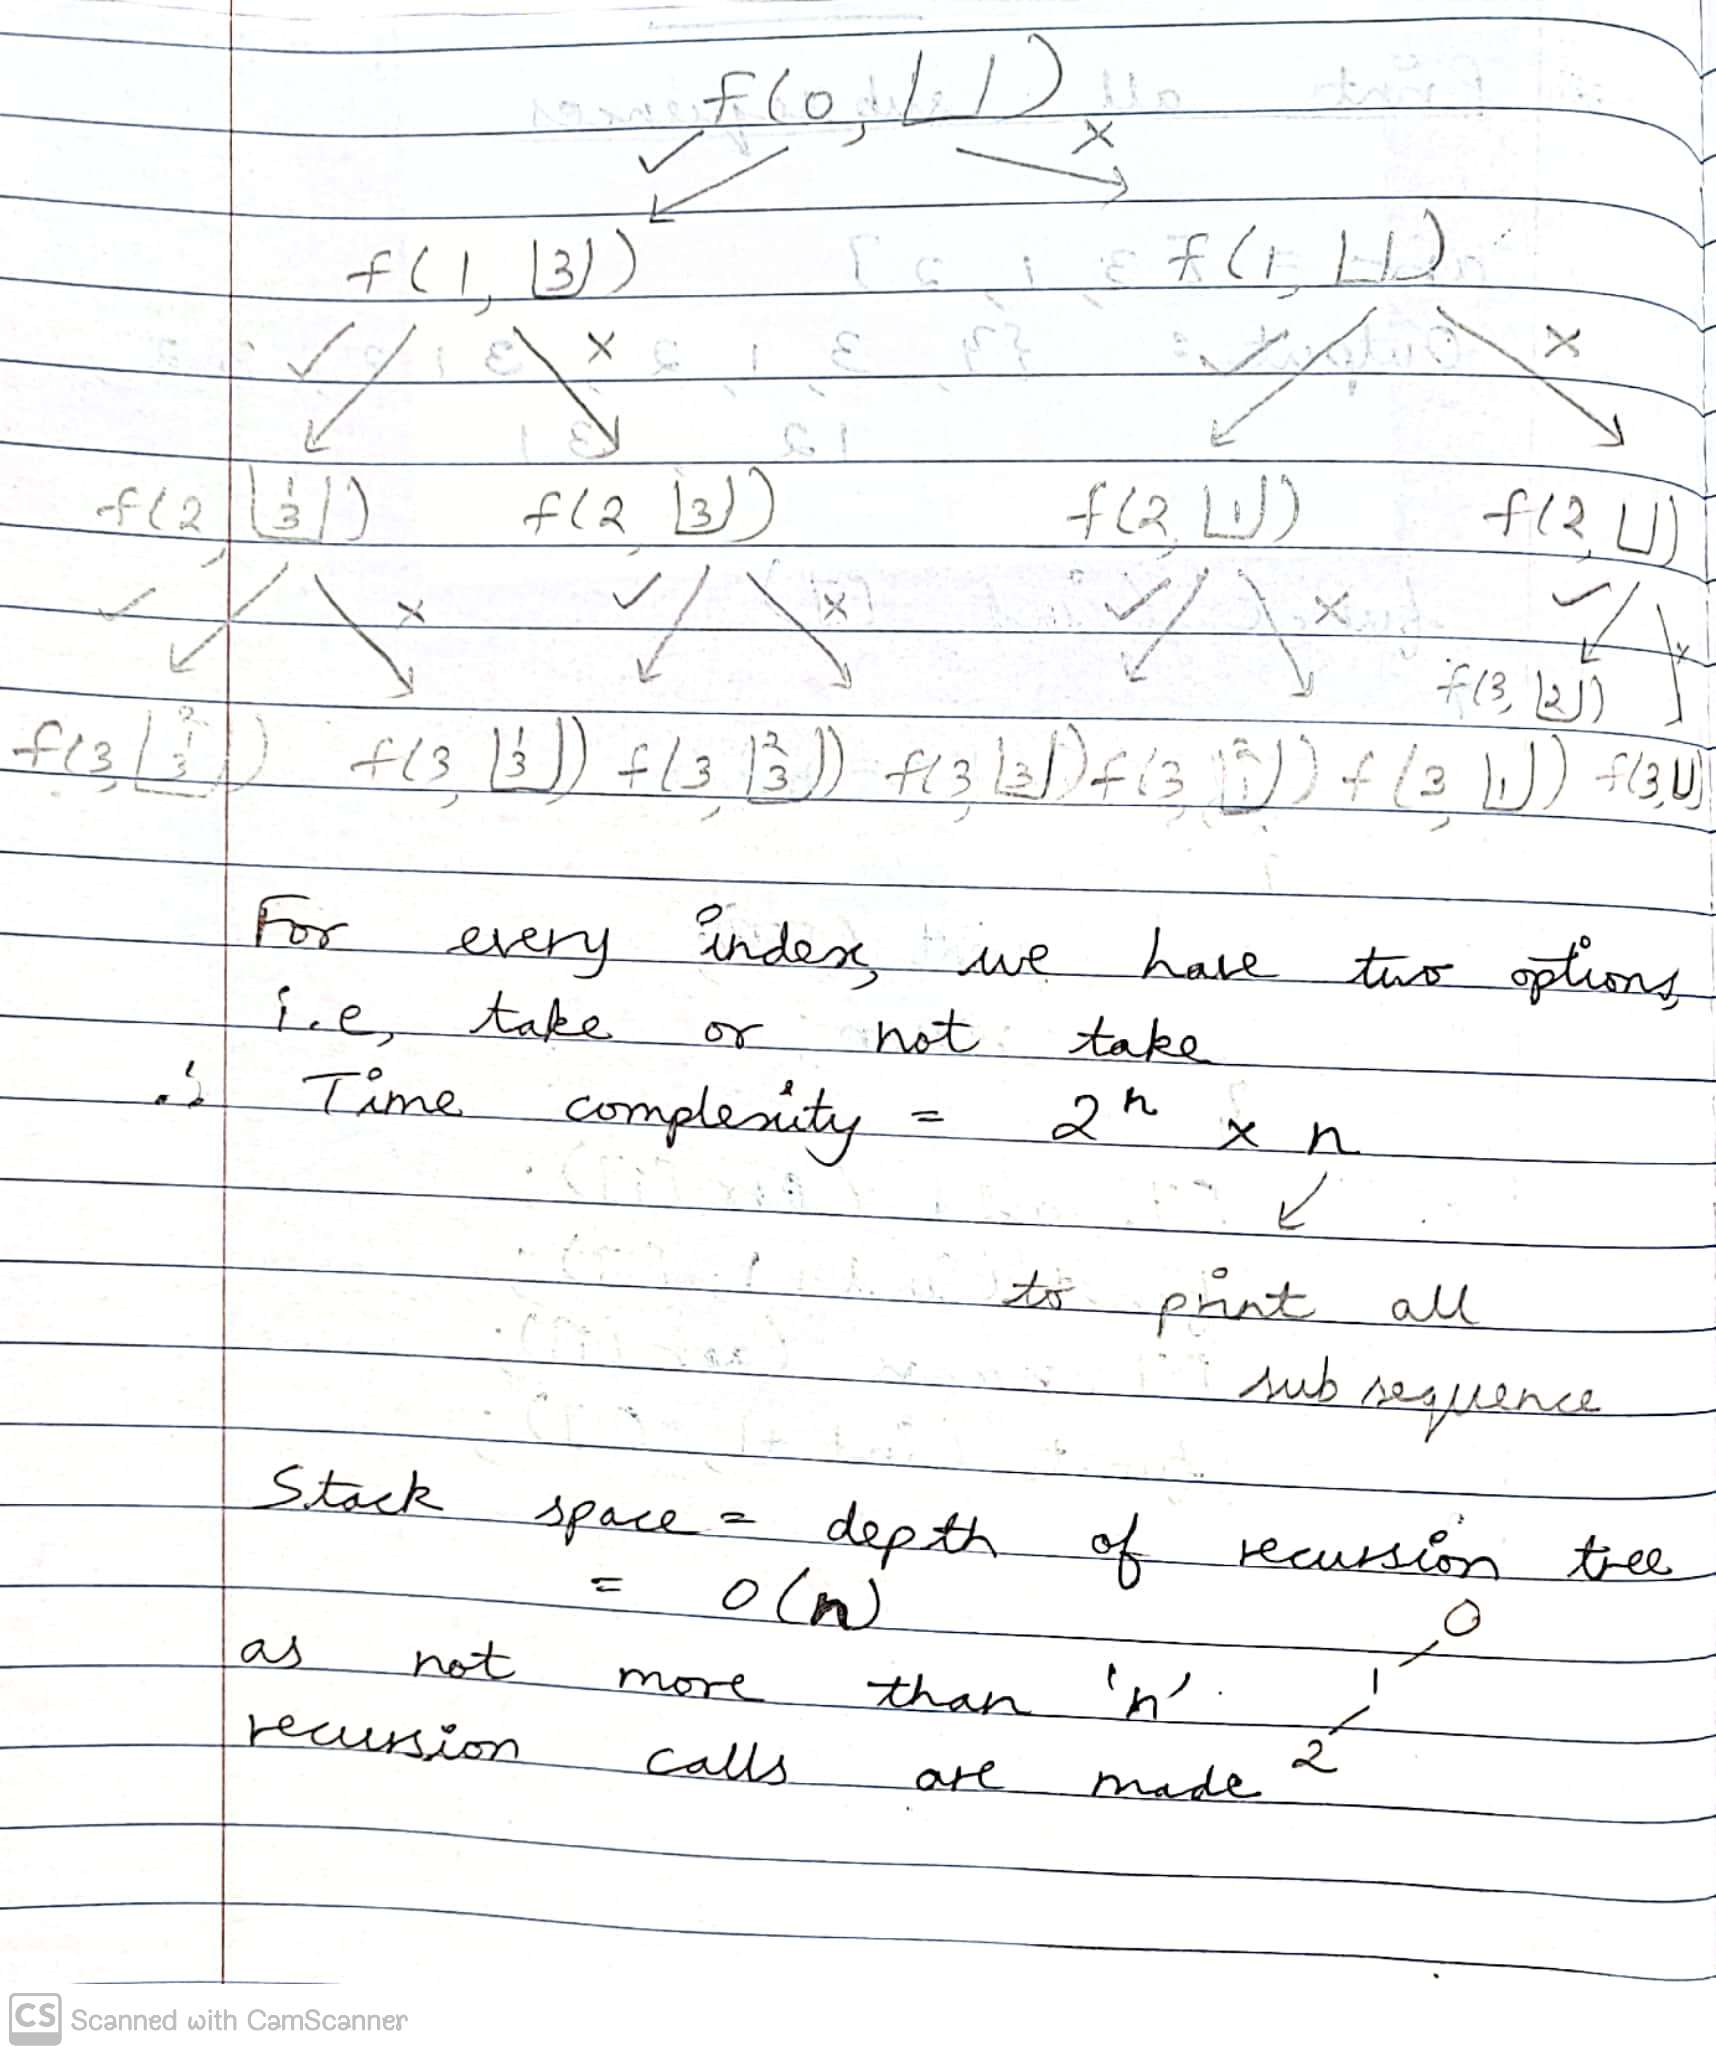 f(0, |_|)
✓ x
f(1, |3|) f(1, |_|)
✓ x ✓ x
f(2, |1 3|) f(2, |3|) f(2, |1|) f(2, |_|)
✓ x ✓ x ✓ x ✓ x
f(3, |2|)
f(3, |2 1 3|) f(3, |1 3|) f(3, |2 3|) f(3, |3|) f(3, |2 1|) f(3, |1|) f(3, |_|)
For every index, we have two options,
i.e, take or not take
∴ Time complexity = 2ⁿ x n
to print all
sub sequence
Stack space = depth of recursion tree
= O(n)
0
as not more than 'n'
1
recursion calls are made
2
CS Scanned with CamScanner